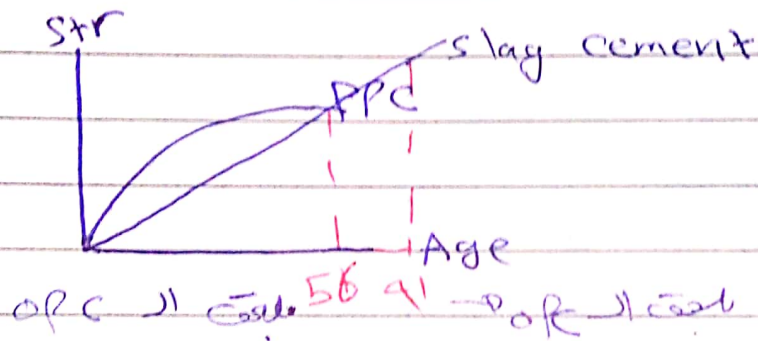 str
slag cement
PPC
Age
56 91
OPC ال
OPC ال